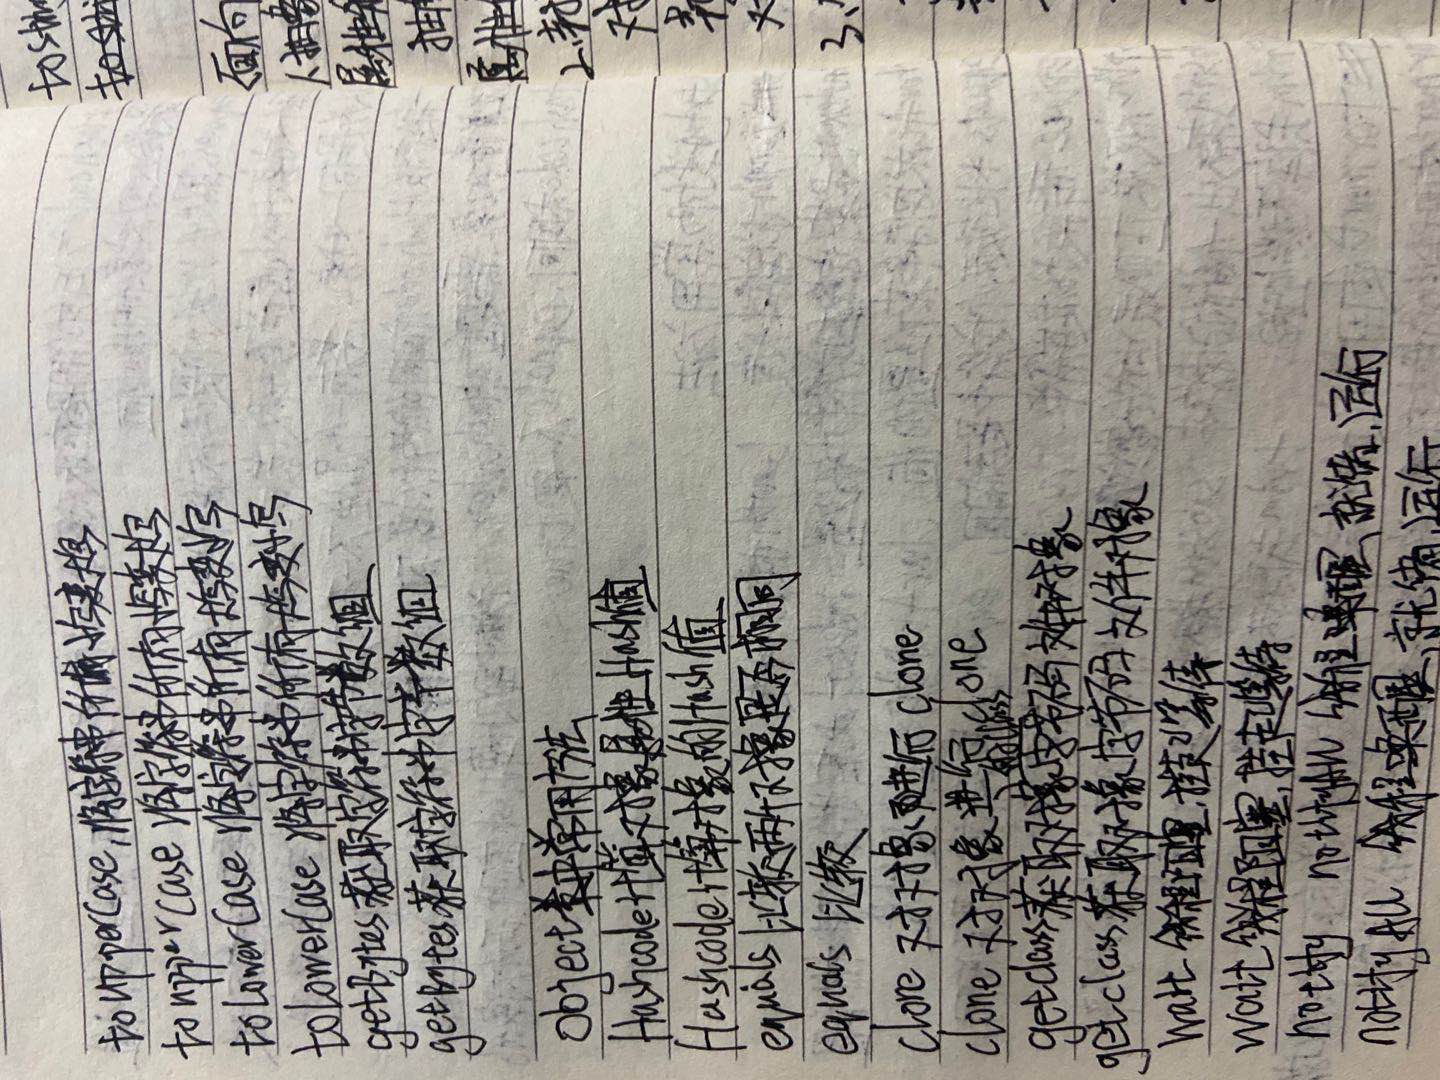 toUpperCase,将字符串所有小写变大写
toupperCase 将字符串所有小写变大写
toLowerCase 将字符串所有大写变小写
toLowerCase 将字符串所有大写变小写
getBytes 获取字符串字节数组
getBytes 获取字符串字节数组
Object类中常用方法
Hashcode计算对象属性Hash值
Hashcode计算对象的Hash值
equals 比较两个对象是否相同
equals 比较
clone 对对象进行 clone
clone 对对象进行 clone
的class
getclass 获取对象字节码文件对象
getclass 获取对象字节码文件对象
wait 线程阻塞,挂起等待
wait 线程阻塞,挂起等待
notify notifyAll 线程唤醒、就绪、运行
notifyAll 线程唤醒、就绪、运行
面向
属性
抽
属性
2、封
对
对
3、